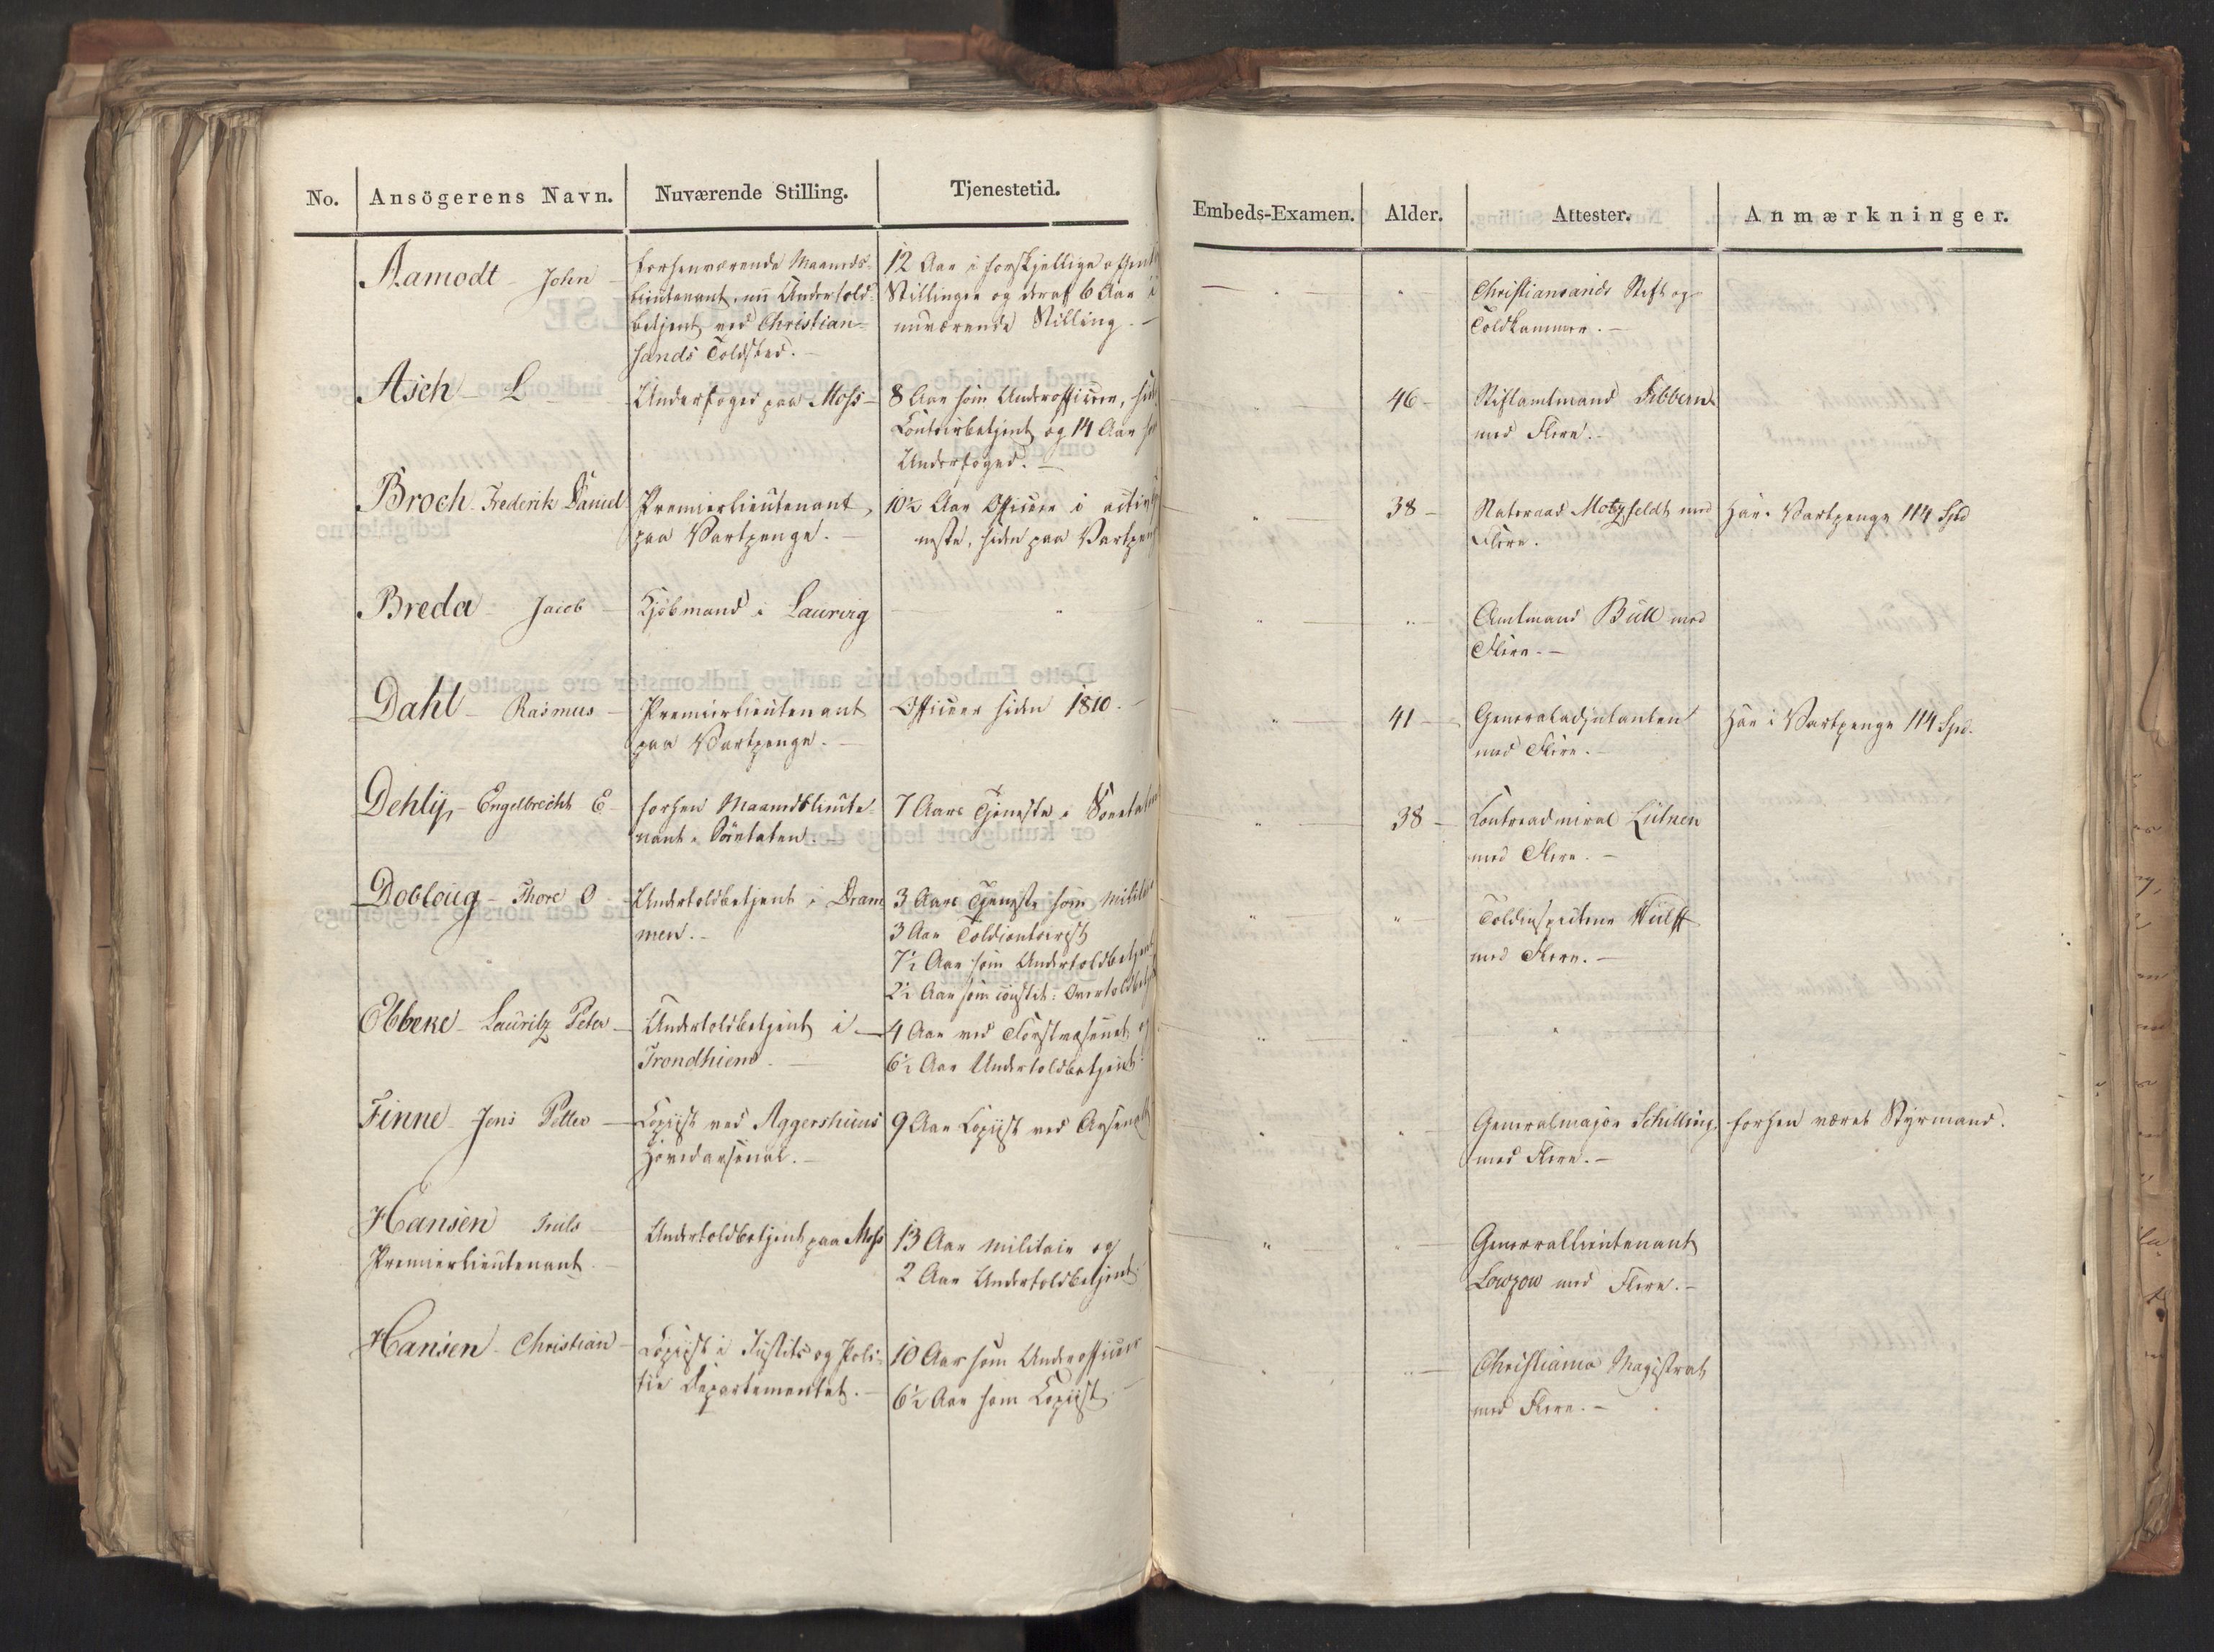 No. Ansögerens Navn. Nuværende Stilling. Tjenestetid.
Embeds-Examen. Alder. Attester. Anmærkninger.
Aamodt John
forhenværende Maaneds-
lieutenant, nu Undertold-
betjent ved Christian-
sands Toldsted.
12 Aar i forskjellige offent
Stillinger og deraf 6 Aar i
nuværende Stilling.
Christiansands Stift og
Toldkammer.
Asch L
Underfoged paa Moss
8 Aar som Underofficeer,
Contoirbetjent og 14 Aar
Underfoged.
46
Stiftamtmand Sibbern
med Flere.
Broch Frederik Daniel
Premierlieutenant,
paa Vartpenge.
10½ Aar Officeer i
neste, siden paa Vartpen
38
Statsraad Motzfeldt med
Flere.
Har i Vartpenge 114 Spd
Breda Jacob
Kjöbmand i Laurvig
Amtmand Bull med
Flere.
Dahl Rasmus
Premierlieutenant
paa Vartpenge.
Officeer siden 1810.
41
Generaladjutanten
med Flere.
Har i Vartpenge 114 Spd.
Dehly, Engelbrecht E
forhen Maanedslieute-
nant i Söeetaten.
7 Aars Tjeneste i Söeetaten
38
Contreadmiral Lütken
med Flere.
Dobloug Thore O
Undertoldbetjent i Dram
men.
3 Aars Tjeneste som Militair
3 Aar Toldcontoirist
7½ Aar som Undertoldbetjent
2½ Aar som constit: Overtoldbetj
Toldinspecteur Wülff
med Flere.
Ebbeke Lauritz Peter
Undertoldbetjent i
Trondhiem.
4 Aar ved Forstvæsenet og
6½ Aar Undertoldbetjent
Finne Jens Petter
Copiist ved Aggershuus
Hovedarsenal.
9 Aar Copiist ved Arsenalet
Generalmajor Schilling
med Flere.
forhen været Styrmand.
Hansen Truls
Premierlieutenant.
Undertoldbetjent paa Moss
13 Aar Militair og
2 Aar Undertoldbetjent.
Generallieutenant
Lowzow med Flere.
Hansen Christian
Copiist i Justits og Poli-
tie Departementet.
10 Aar som Underofficeer
6½ Aar som Copiist
Christiania Magistrat
med Flere.